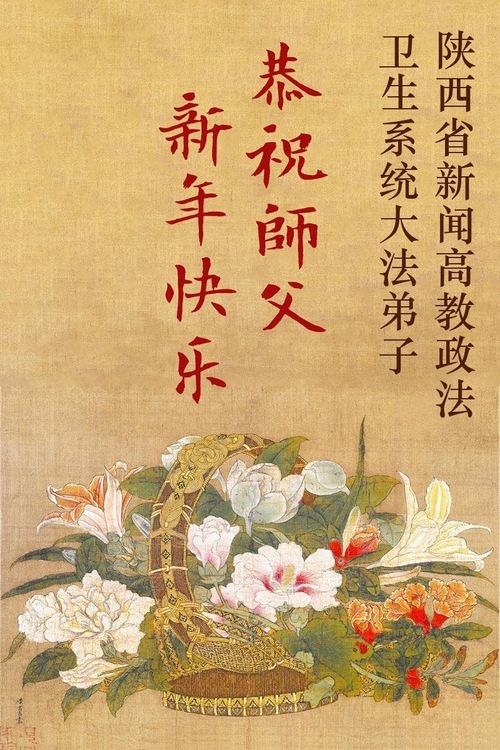 陕西省新闻高教政法
卫生系统大法弟子
恭祝師父
新年快乐